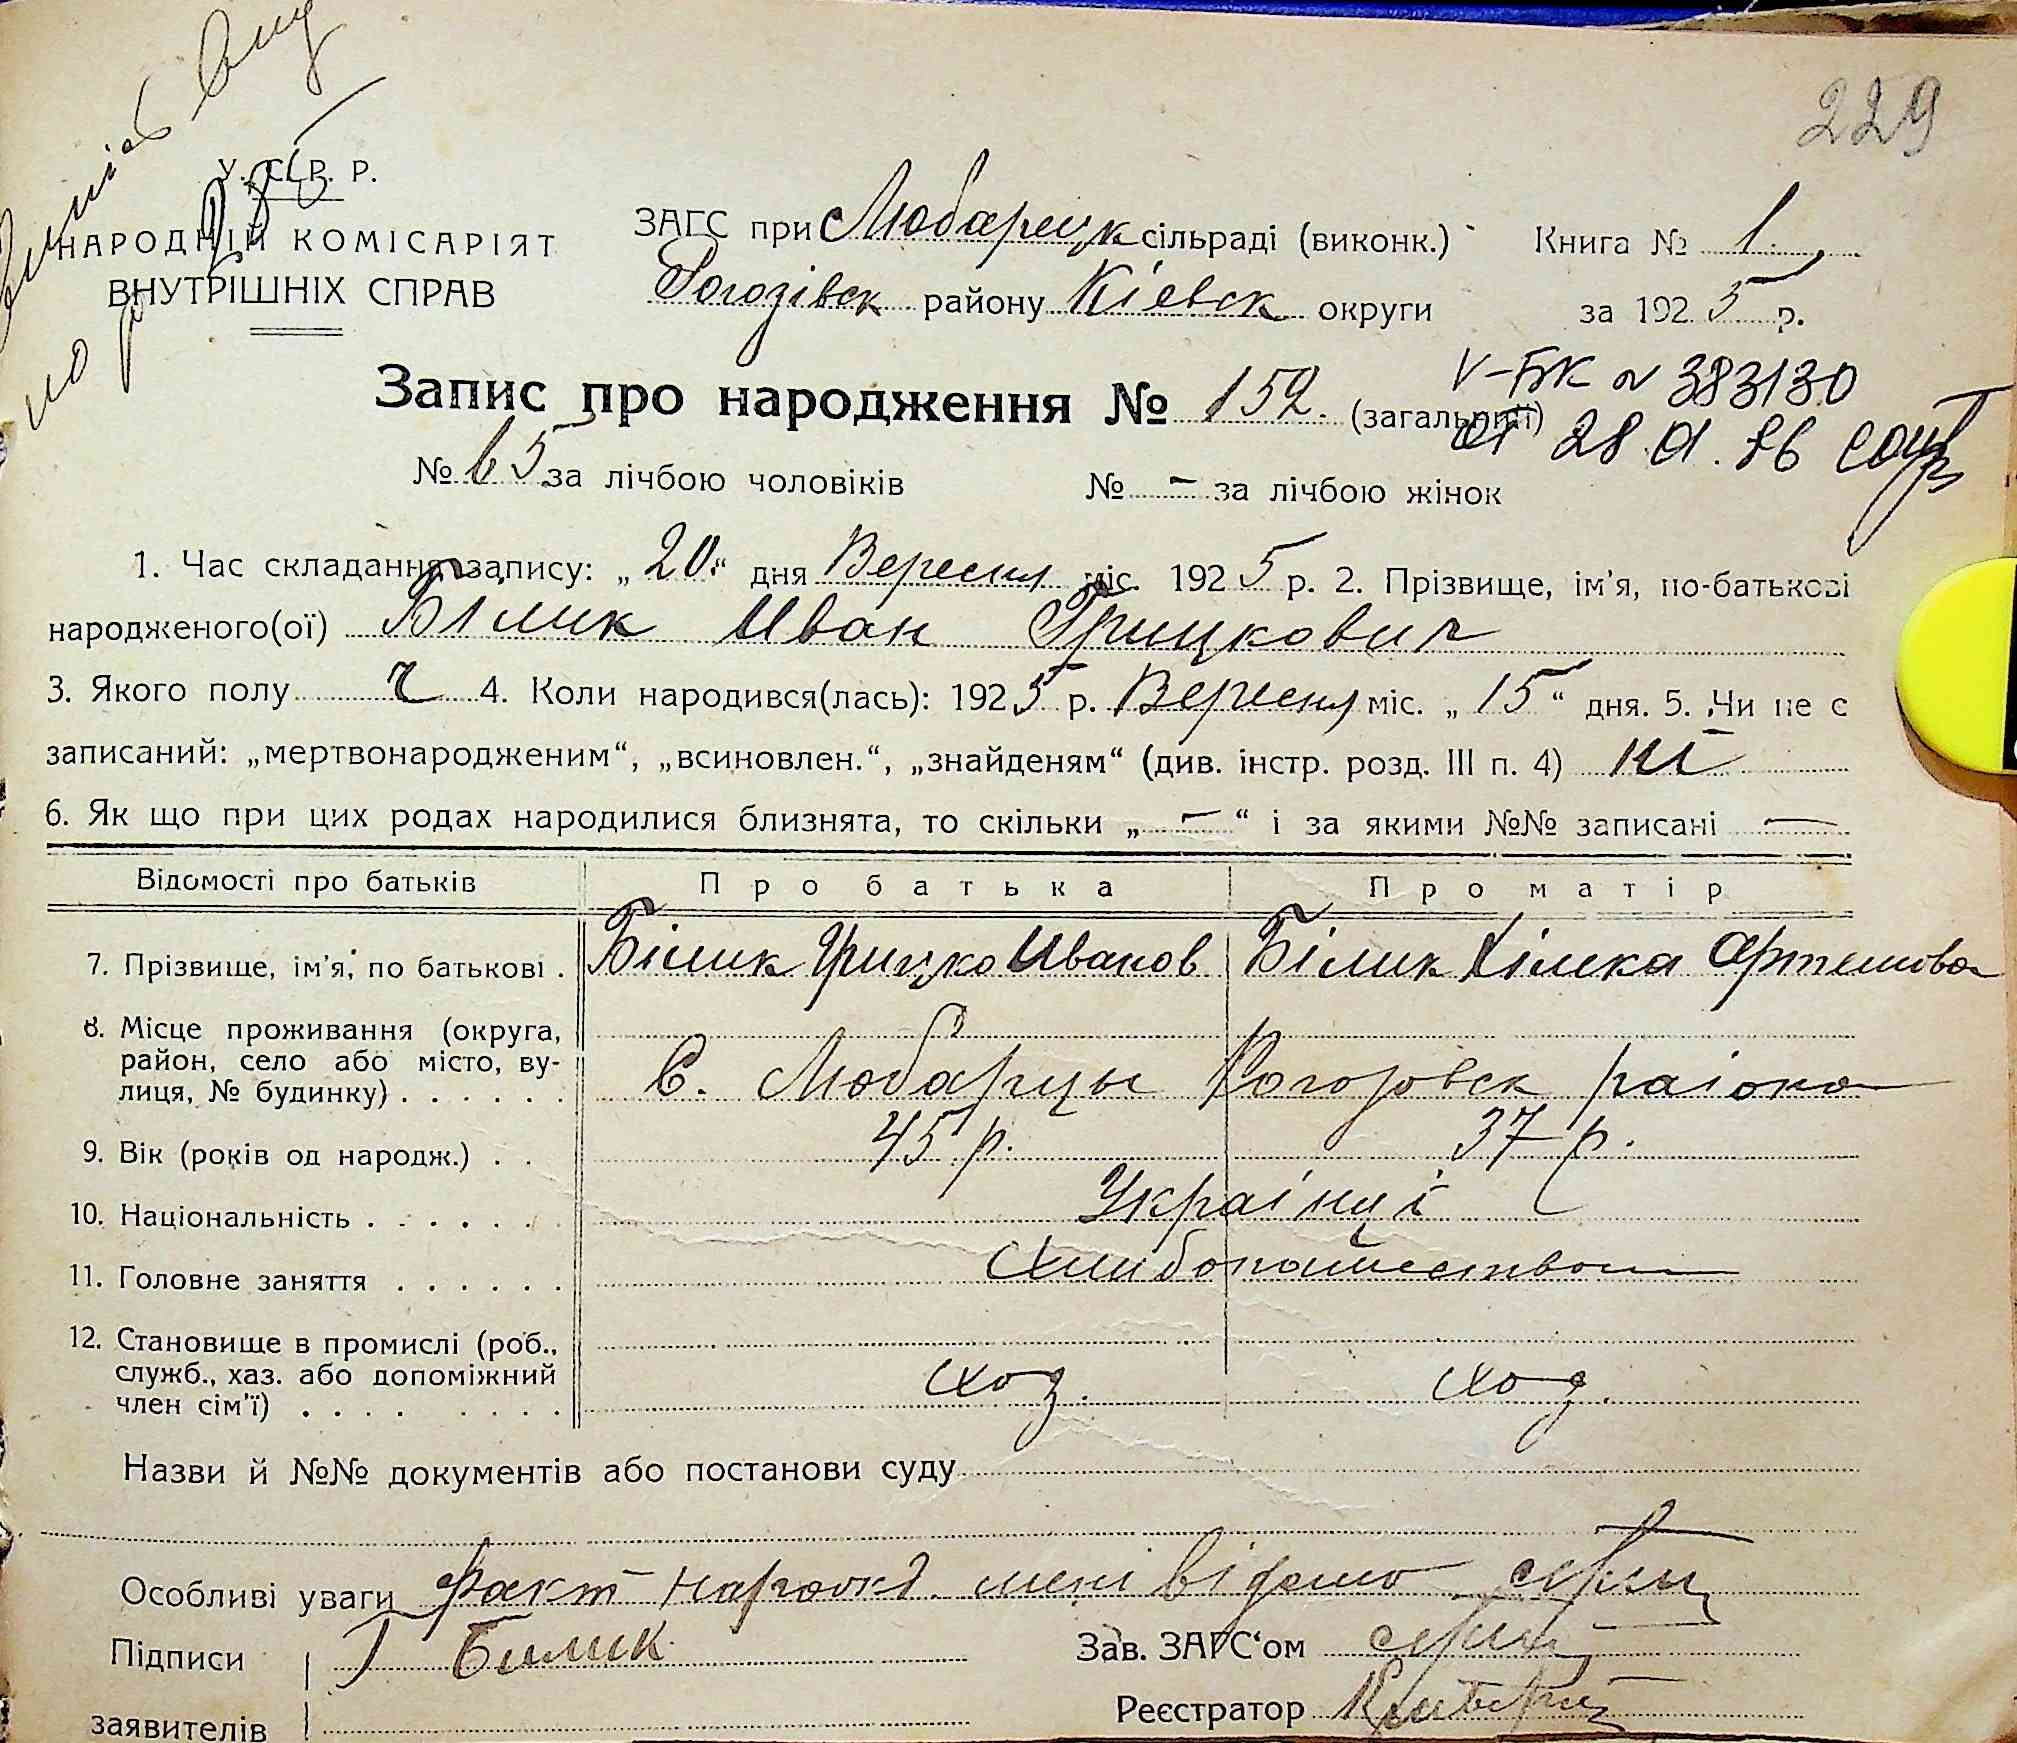 229
У. С. Р. Р.
НАРОДНІЙ КОМІСАРІЯТ
ВНУТРІШНІХ СПРАВ
ЗАГС при Любарецк сільраді (виконк.) Книга № 1
Рогозівск району Кіевск округи за 1925 р.
Запис про народження № 152. (загальний)
V-БК № 383130
от 28.01.86
№ 65 за лічбою чоловіків № - за лічбою жінок
1. Час складання запису: „20“ дня Вересня міс. 1925 р. 2. Прізвище, ім'я, по-батькові
народженого(ої) Білик Иван Грицкович
3. Якого полу ч 4. Коли народився(лась): 1925 р. Вересня міс. „15“ дня. 5. Чи не є
записаний: „мертвонародженим“, „всиновлен.“, „знайденям“ (див. інстр. розд. III п. 4) ні
6. Як що при цих родах народилися близнята, то скільки „-“ і за якими №№ записані —
Відомості про батьків Про батька Про матір
7. Прізвище, ім'я, по батькові . Білик Грицко Иванов Білик Хімка Артемова
8. Місце проживання (округа,
район, село або місто, ву-
лиця, № будинку) . . . . . . С. Любарцы Рогозовск раіона
9. Вік (років од народж.) . . 45 р. 37 р.
10. Національність . . . . . . Украінці
11. Головне заняття . . . . . .
12. Становище в промислі (роб.,
служб., хаз. або допоміжний
член сім'ї) . . . . . . . .
Назви й №№ документів або постанови суду
Особливі уваги Факт народж. мені відомо
Підписи Г Билик Зав. ЗАГС'ом
заявителів Реєстратор